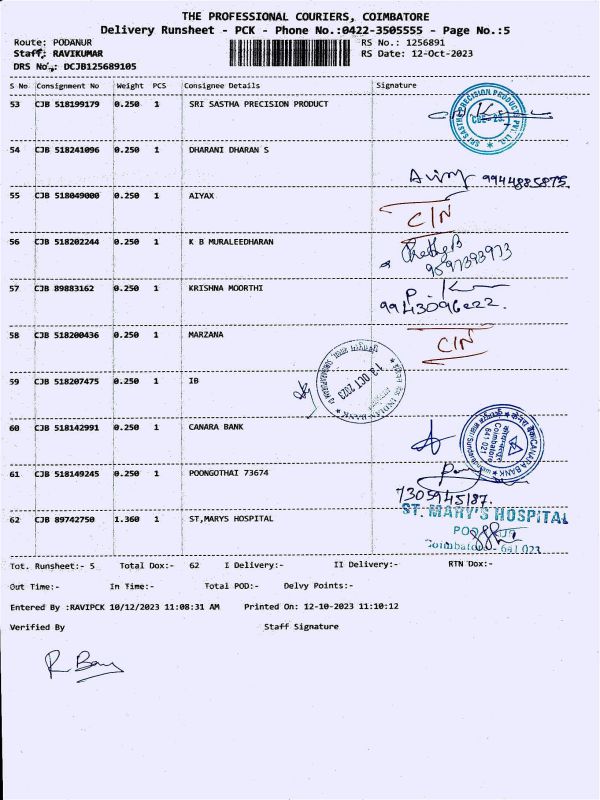 THE PROFESSIONAL COURIERS, COIMBATORE
Delivery Runsheet - PCK - Phone No.:0422-3505555 - Page No.:5
Route: PODANUR RS No.: 1256891
Staff: RAVIKUMAR RS Date: 12-Oct-2023
DRS No.: DCJB125689105
S No Consignment No Weight PCS Consignee Details Signature
53 CJB 518199179 0.250 1 SRI SASTHA PRECISION PRODUCT
SRI SASTHA PRECISION PRODUCTS PVT. LTD.
54 CJB 518241096 0.250 1 DHARANI DHARAN S
9944885875.
55 CJB 518049000 0.250 1 AIYAX
C/N
56 CJB 518202244 0.250 1 K B MURALEEDHARAN
9597393973
57 CJB 89883162 0.250 1 KRISHNA MOORTHI
9943096222.
58 CJB 518200436 0.250 1 MARZANA
C/N
59 CJB 518207475 0.250 1 IB
INDIAN BANK
13 OCT 2023
60 CJB 518142991 0.250 1 CANARA BANK
CANARA BANK
Coimbatore
641 021
61 CJB 518149245 0.250 1 POONGOTHAI 73674
7305945187.
62 CJB 89742750 1.360 1 ST,MARYS HOSPITAL
ST. MARY'S HOSPITAL
Coimbatore - 641 023
Tot. Runsheet:- 5 Total Dox:- 62 I Delivery:- II Delivery:- RTN Dox:-
Out Time:- In Time:- Total POD:- Delvy Points:-
Entered By :RAVIPCK 10/12/2023 11:08:31 AM Printed On: 12-10-2023 11:10:12
Verified By Staff Signature